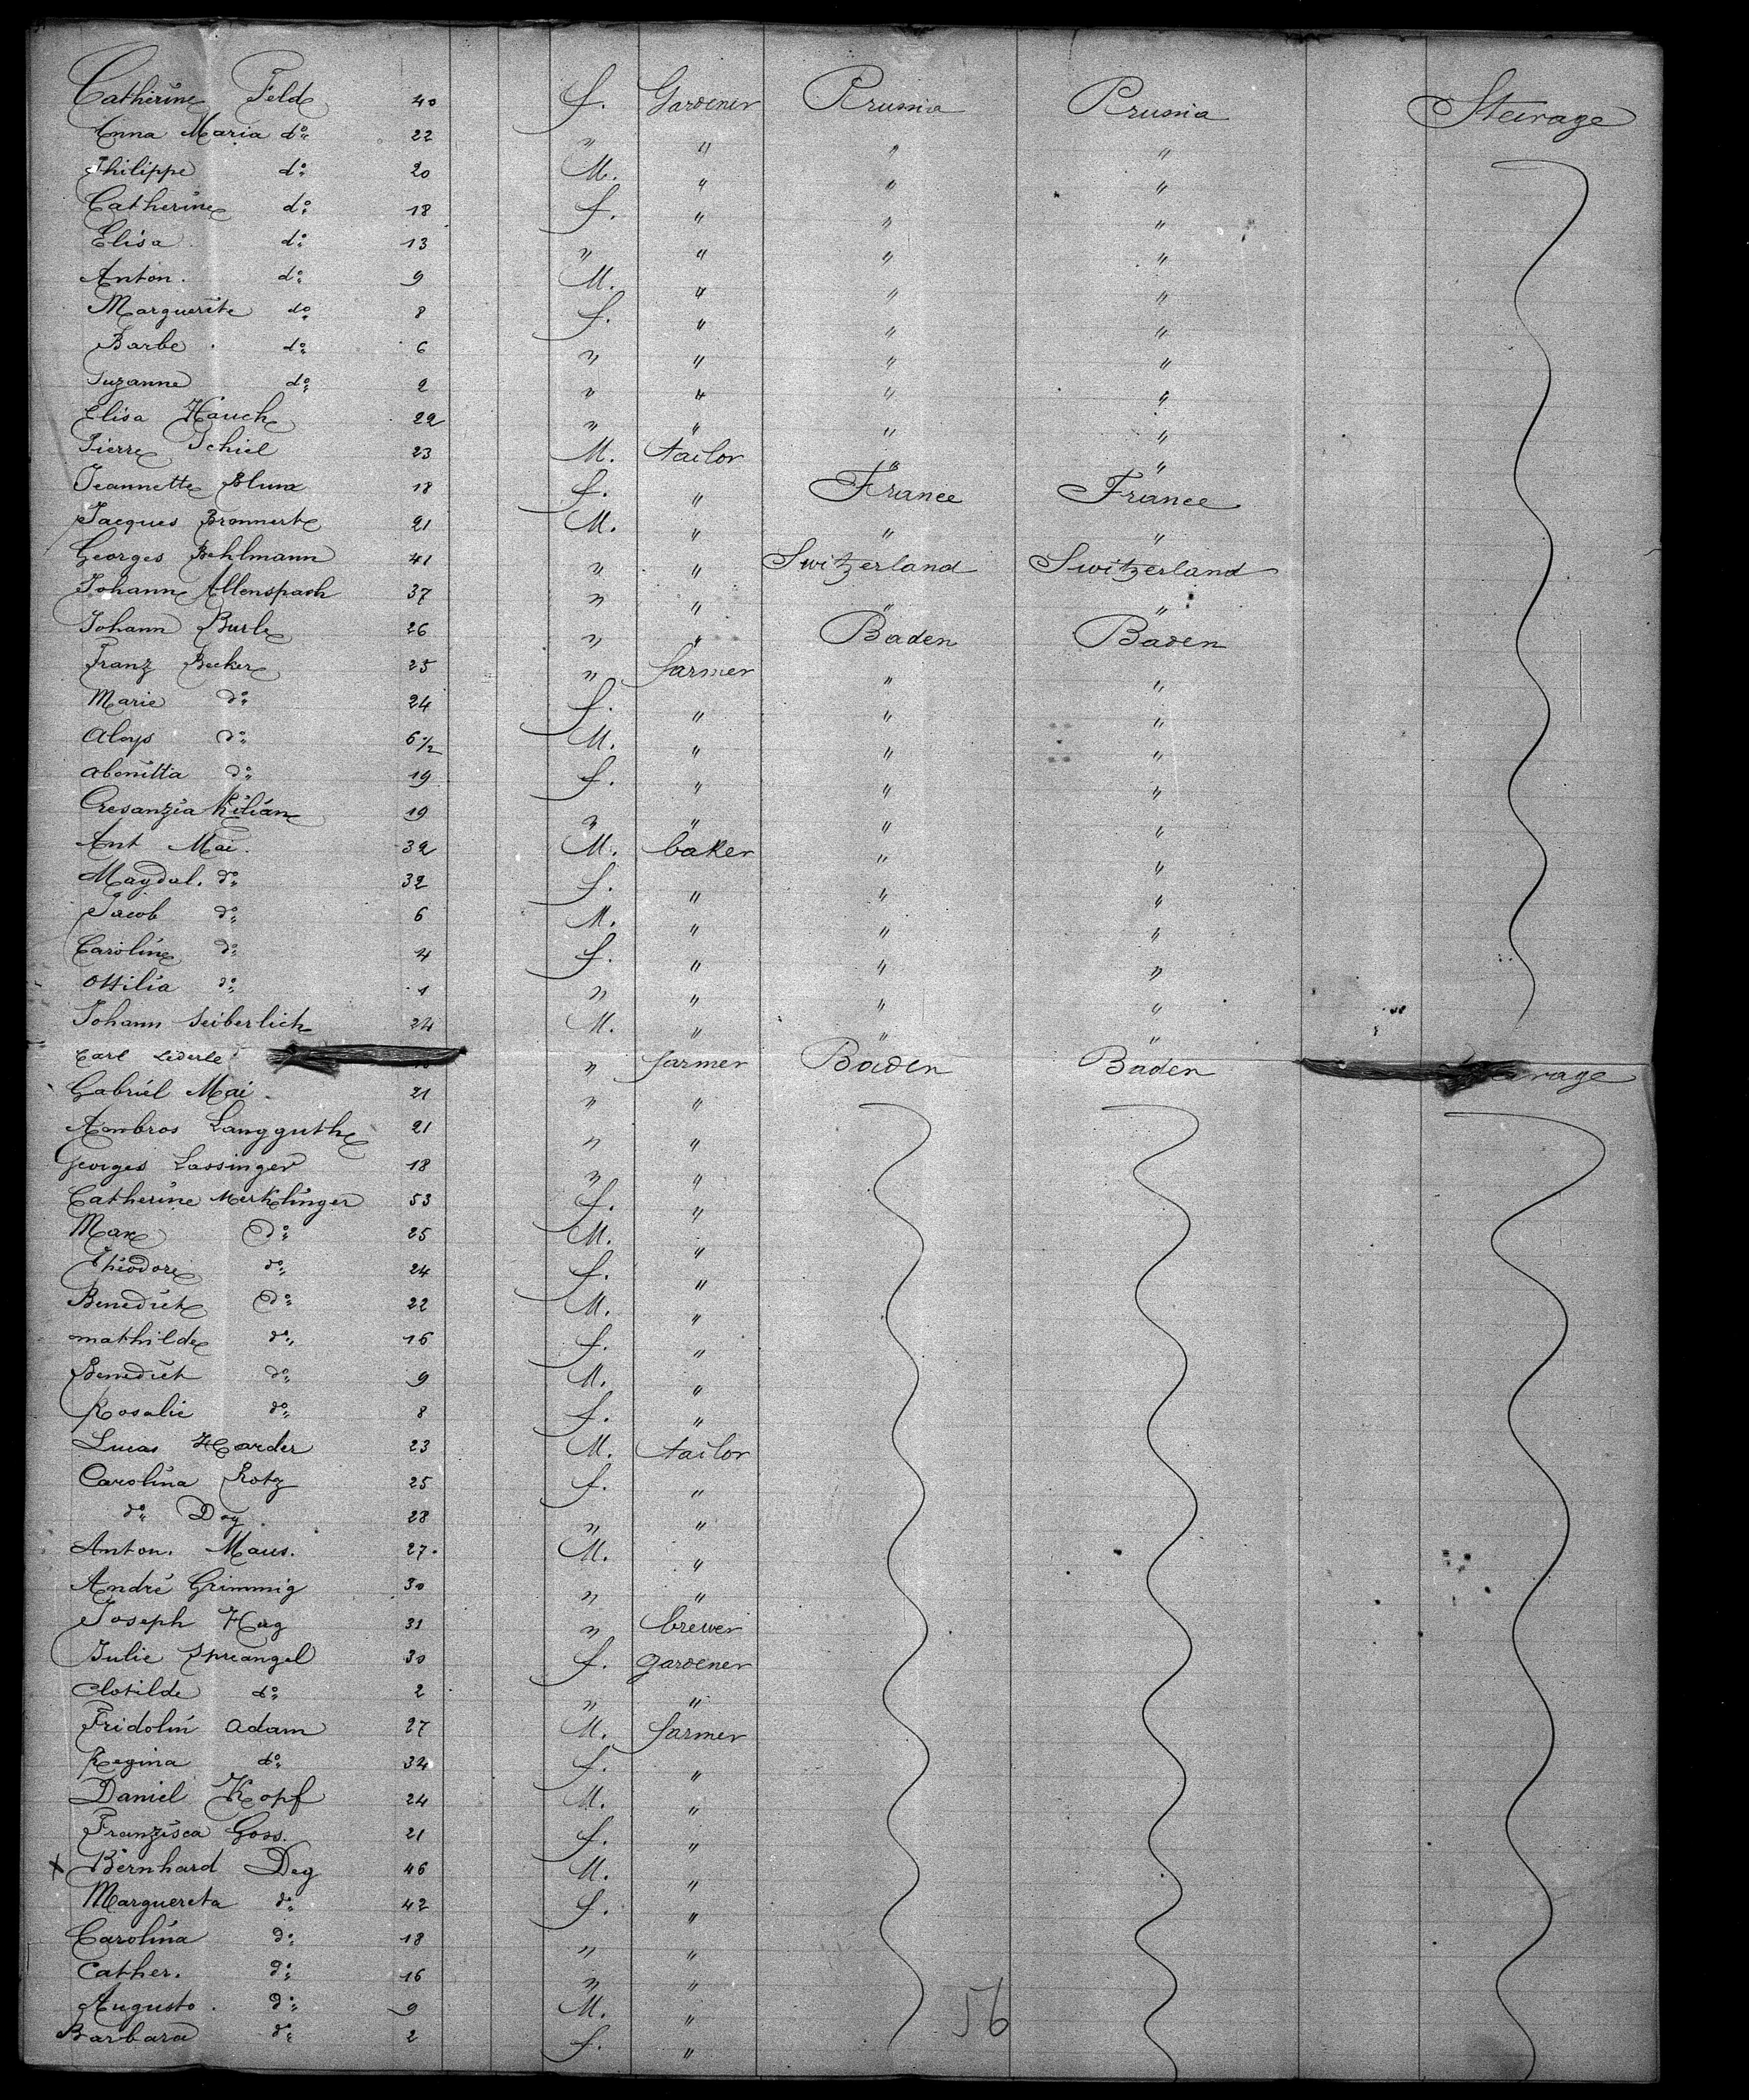 Catherine Feld 40 f. Gardener Prussia Prussia Steirage
Anna Maria do 22 " " " "
Philippe do 20 M. " " "
Catherine do 18 f. " " "
Elisa do 13 " " " "
Anton. do 9 M. " " "
Marguerite do 8 f. " " "
Barbe do 6 " " " "
Suzanne do 2 " " " "
Elisa Hauch 22 " " " "
Pierre Schiel 23 M. tailor " "
Jeannette Blum 18 f. " France France
Jacques Bronnert 21 M. " " "
Georges Behlmann 41 " " Switzerland Switzerland
Johann Allenspach 37 " " " "
Johann Burle 26 " " Baden Baden
Franz Becker 25 " farmer " "
Marie do 24 f. " " "
Aloys do 6 1/2 M. " " "
abenitta do 19 f. " " "
Cresanzia Kilian 19 " " " "
Ant Mai. 32 M. baker " "
Magdal. do 32 f. " " "
Jacob do 6 M. " " "
Caroline do 4 f. " " "
Ottilia do 1 " " " "
Johann Seiberlich 24 M. " " "
Carl Lederle " farmer Baden Baden
Gabriel Mai. 21 " "
Ambros Langguth 21 " "
Georges Lassinger 18 " "
Catherine Merklinger 53 f. "
Max do 25 M. "
Théodore do 24 f. "
Benedict do 22 M. "
mathilde do 16 f. "
Benedict do 9 M. "
Rosalie do 8 f. "
Lucas Harder 23 M. tailor
Carolina Rotz 25 f. "
do Dog. 28 " "
Anton. Maus. 27. M. "
André Grimmig 30 " "
Joseph Hag 31 " brewer
Julie Spreangel 30 f. gardener
Clotilde do 2 " "
Fridolin Adam 27 M. farmer
Regina do 32 f. "
Daniel Kopf 24 M. "
Franzisca Goss. 21 f. "
x Bernhard Deg 46 M. "
Marguereta do 42 f. "
Carolina do 18 " "
Cather. do 16 " "
Augusto. do 9 M. "
Barbara do 2 f. "
56